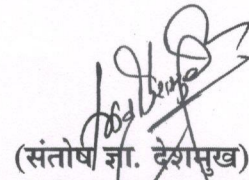 (संतोष ज्ञा. देशमुख)